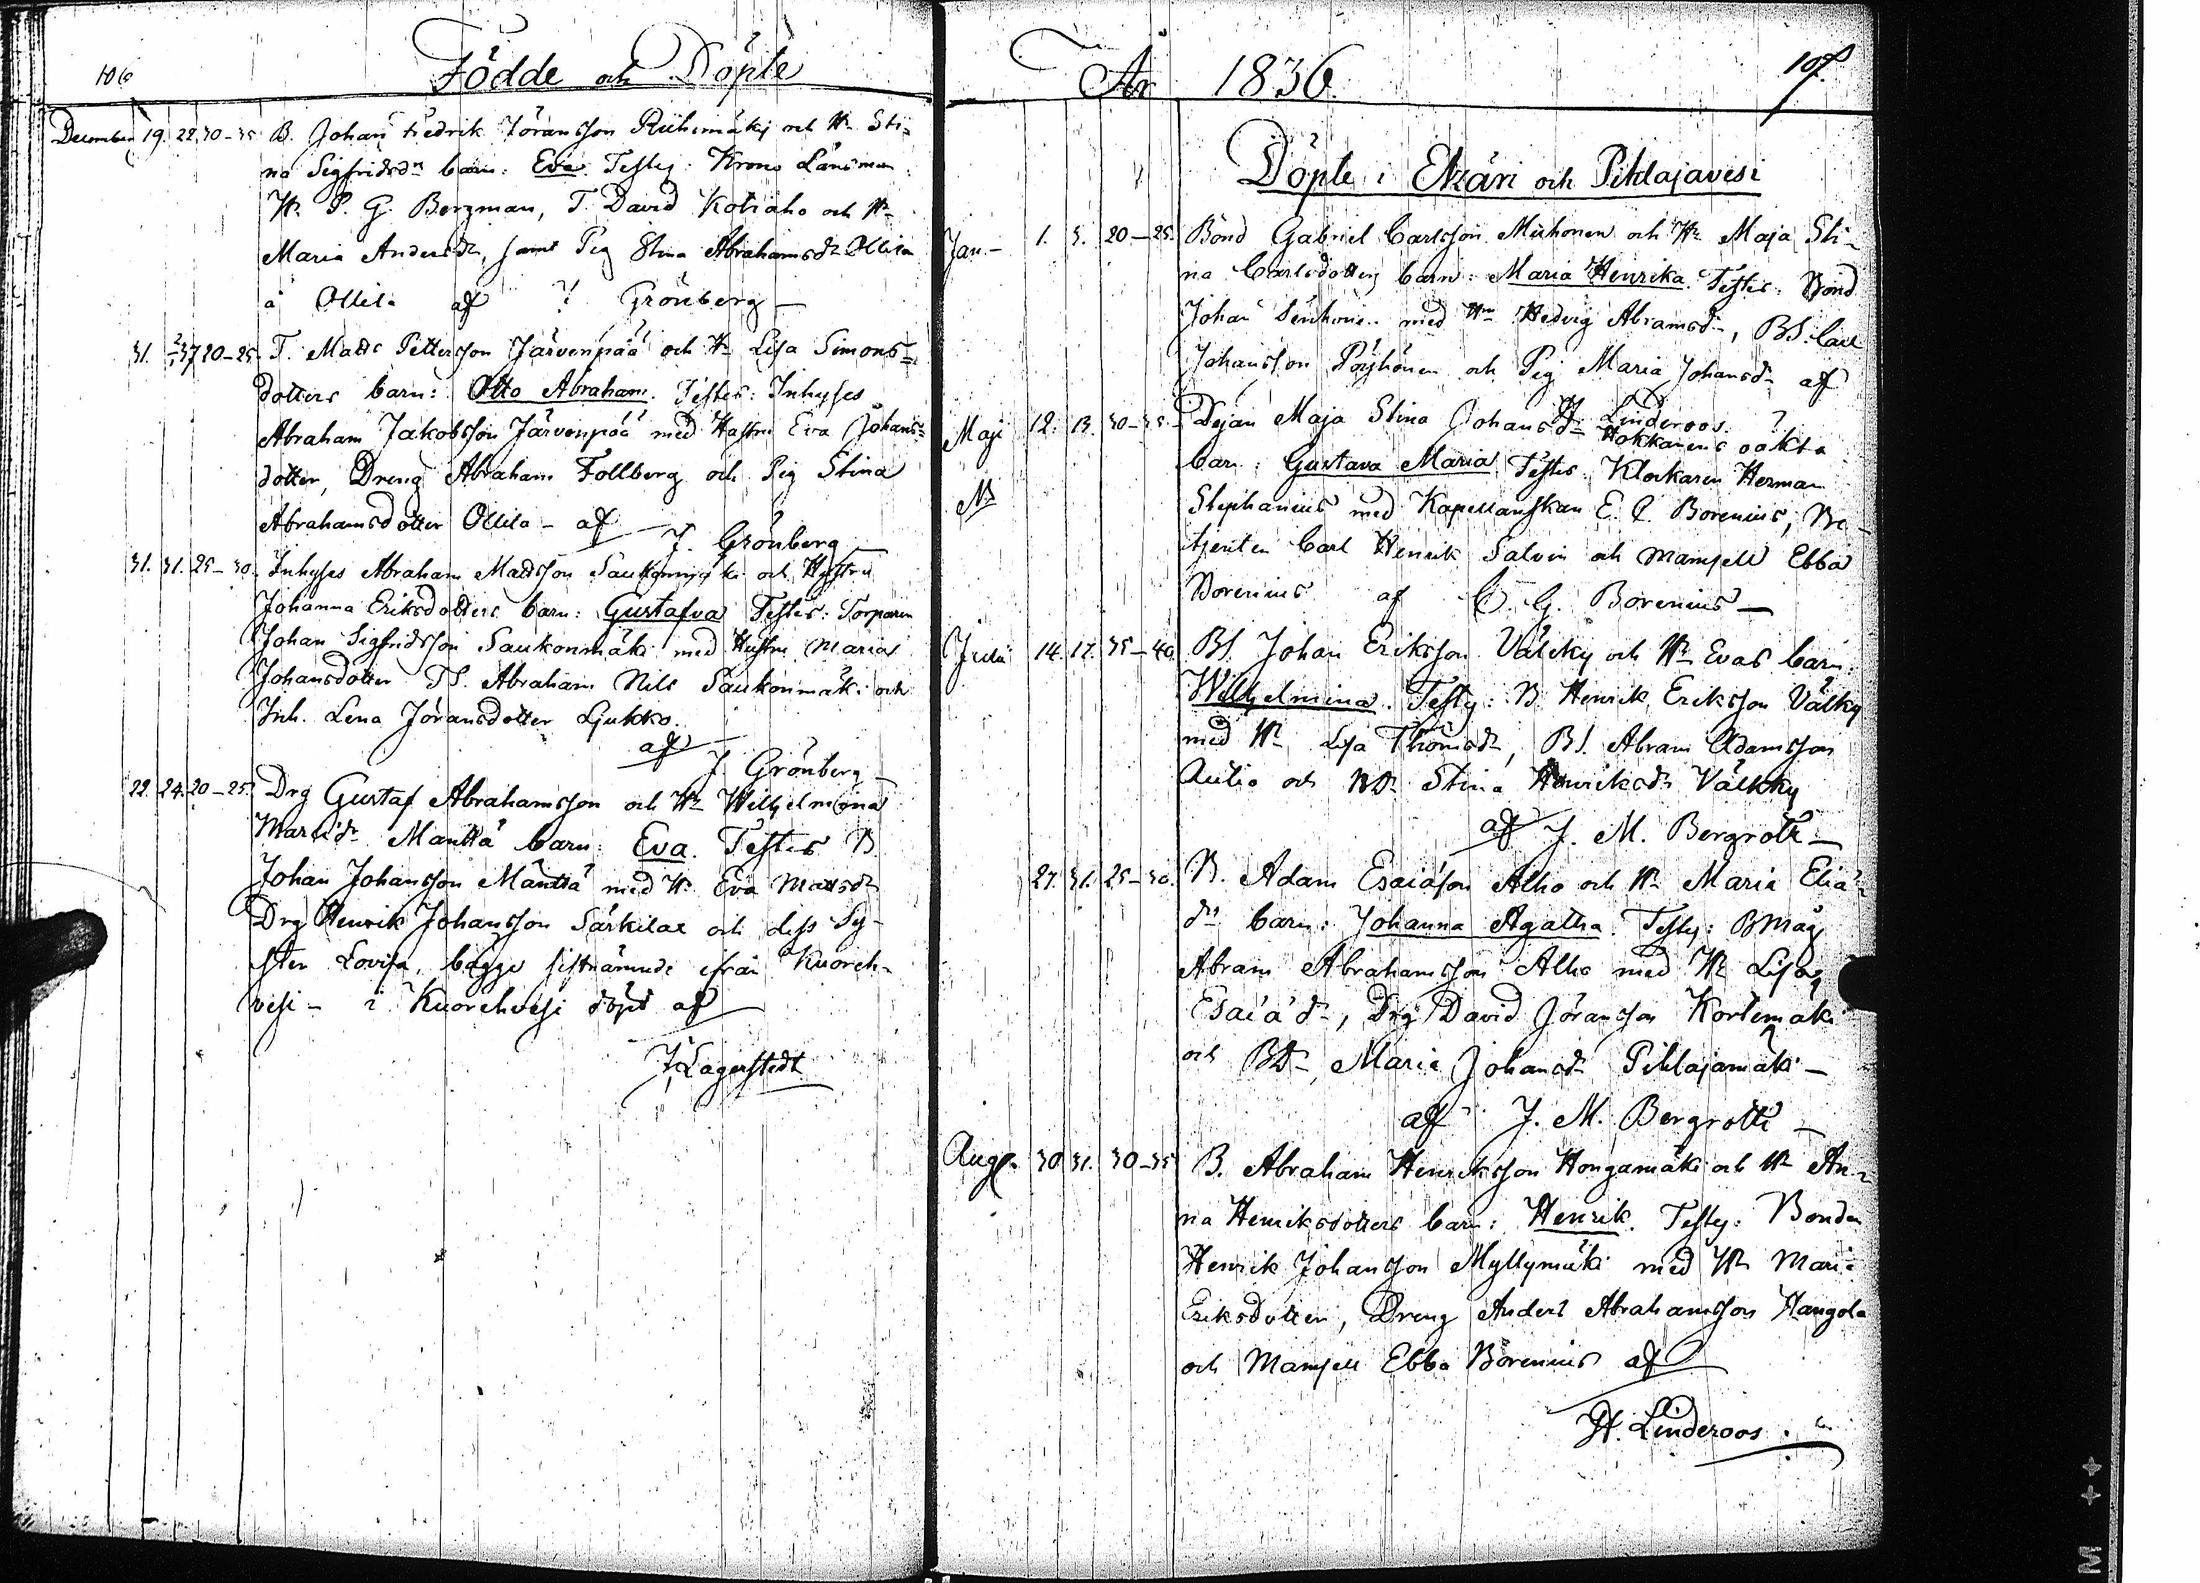 106
Födde och Döpte
December 19. 22. 30-35 B. Johan Fredrik Jöransson Riihimäki och H. Sti-
na Sigfridsdrs barn: Eva. Testes: Krono Länsman
Hr P. G. Bergman, T. David Kotiaho och H.
Maria Andersdr, samt Pig Stina Abrahamsdr Ollila
å Ollila af J Grönberg
31. 20-25. T. Matts Pettersson Järvenpää och H. Lisa Simons-
dotters barn: Otto Abraham. Testes: Inhyses
Abraham Jakobsson Järvenpää med Hustru Eva Johans-
dotter, Dreng Abraham Follberg och Pig Stina
Abrahamsdotter Ollila - af
J. Grönberg
31. 31. 25-30. Inhyses Abraham Mattsson Saukonmäki och Hustru
Johanna Eriksdotters barn: Gustafva Testes: Torparen
Johan Sigfridsson Saukonmäki med Hustru Maria
Johansdotter TS. Abraham Nils Saukonmäki och
Inh. Lena Jöransdotter Ljukko.
af
J Grönberg
22. 24. 20-25. Drg Gustaf Abrahamsson och H. Wilhelmina
Mänttä barn: Eva. Testes B
Johan Johansson Mänttä med H. Eva Mattsdr
Drg Henrik Johansson Särkilax och dess Sy-
ster Lovisa, bägge sistnämnde ifrån Kuoreh-
vesi - i Kuorehvesi döpt af
J. Lagerstedt
År 1836.
107.
Döpte i Etzäri och Pihlajavesi
Jan. 1. 3. 20-25. Bond Gabriel Carlsson Muhonen och H. Maja Sti-
na Carlsdotters barn: Maria Henrika. Testes: Bond
Johan med Hu Hedvig Abramsdr, BS. Carl
Johansson Pöyhönen och Pig Maria Johansdr af
H. Linderoos
Maji 12. 13. 30-35. Dejan Maja Stina Johansdr Hokkanens oäkta
barn: Gustava Maria Testes Klockaren Herman
Stephanius med Kapellanskan E. C. Borenius, Be-
tjenten Carl Henrik Salvin och Mamsell Ebba
Borenius af C. G. Borenius
Julii 14. 17. 35-40. BS. Johan Eriksson Välcky och H. Evas barn:
Wilhelmina. Testes: B. Henrik Eriksson Välky
med H. Lisa Thomsdr, BS. Abram Adamsson
Autio och BD. Stina Henricksdr Välkky
af J. M. Bergroth
27. 31. 25-30. B. Adam Esaiasson Alho och H. Maria Elia-
drs barn: Johanna Agatha. Testes: BMåg
Abram Abrahamsson Alho med H. Lisa
Esaiädr, Drg David Jöransson Kortemäki
och BD. Maria Johansdr Pihlajamäki
af J. M. Bergroth
Aug. 30. 31. 30-35 B. Abraham Henricksson Hongamäki och H. An-
na Henriksdotters barn: Henrik. Testes: Bonden
Henrik Johansson Myllymäki med H. Maria
Eriksdotter, Dreng Anders Abrahamsson Hangola
och Mamsell Ebba Borenius af
H. Linderoos